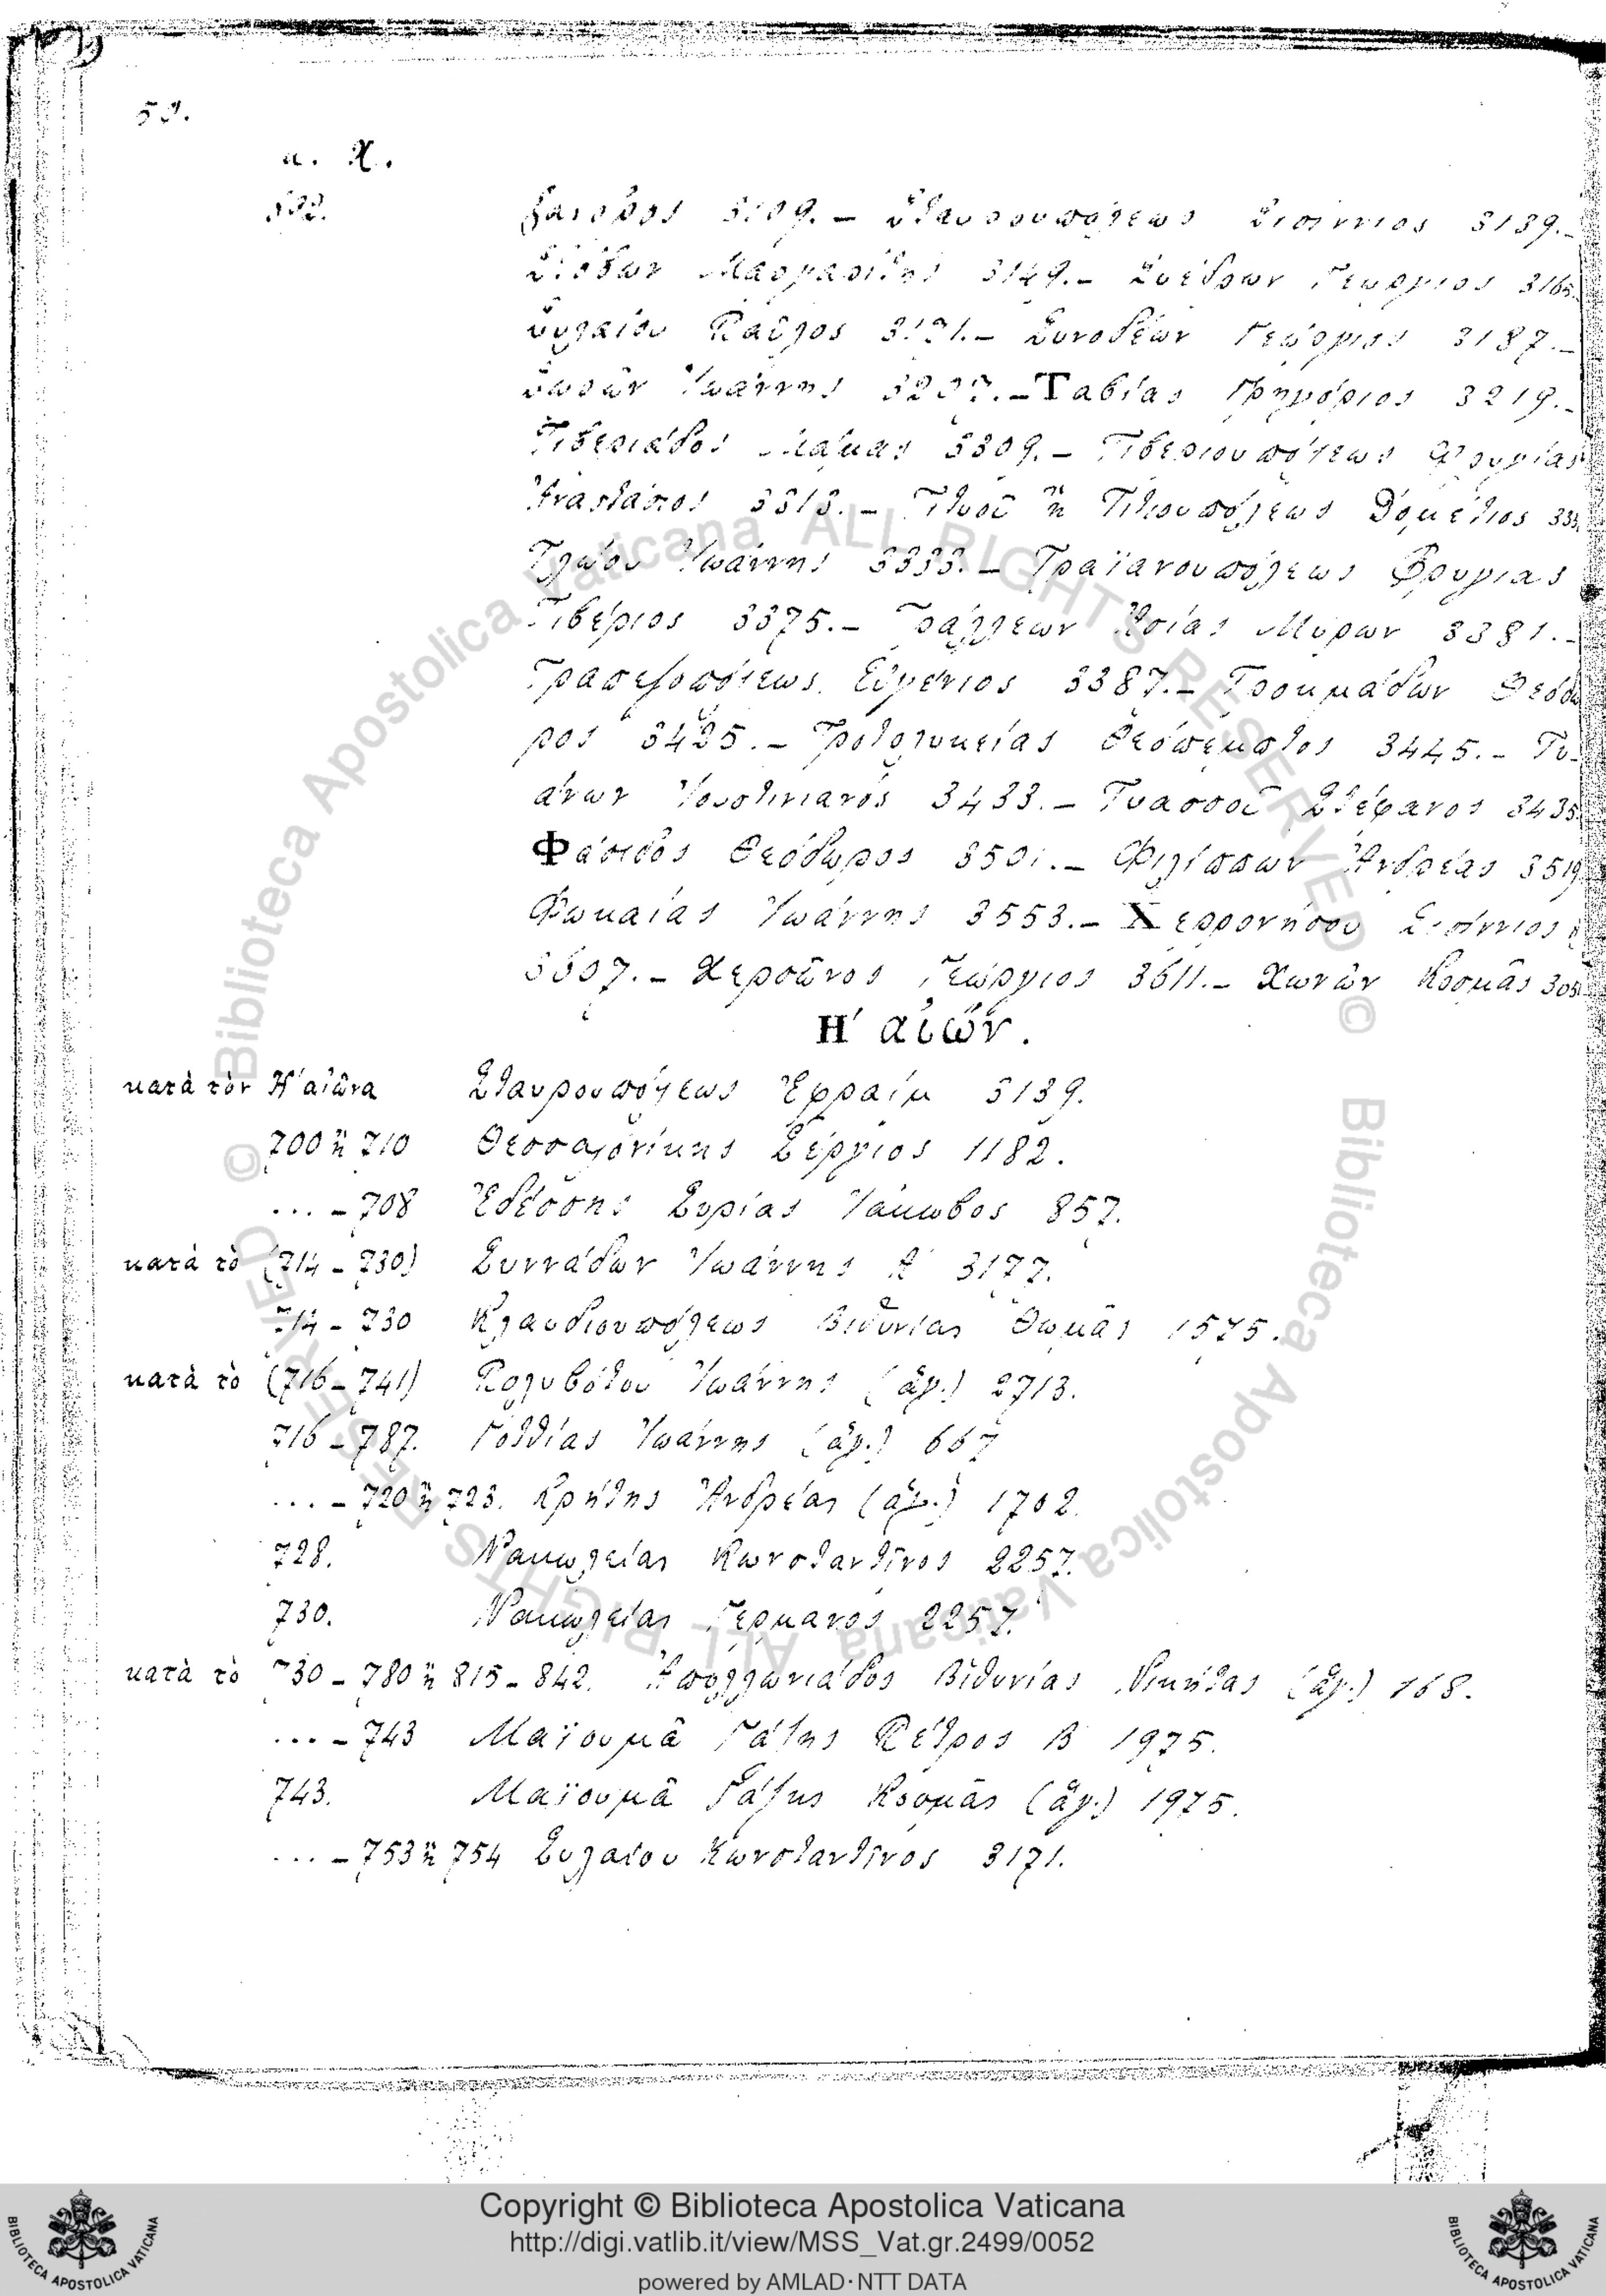 κ. Χ.
3109. – Σταυρουπόλεως Σισίννιος 3139. –
Μαργαρίτης 3149. – Συέδρων Γεώργιος 3165.
Συλαίου Παῦλος 3171. – Συνοδέων Γεώργιος 3187. –
Ἰωάννης – Ταβίας Γρηγόριος 3219. –
Τιβεριάδος Μάμας 3309. – Τιβεριουπόλεως Φρυγίας
Ἀναστάσιος 3313. – Τιτυοῦ ἢ Τιτιουπόλεως Δομέτιος
Τλώου Ἰωάννης 3333. – Τραϊανουπόλεως Φρυγίας
Τιβέριος 3375. – Τράλλεων Ἀσίας Μύρων 3381. –
Τραπεζοπόλεως Εὐγένιος 3387. – Τροκμάδων Θεόδω
ρος 3425. – Θεόπεμπτος 3445. – Τυ-
άνων Ἰουστινιανός 3433. – Τυασσοῦ Στέφανος 3435
Φάσιδος Θεόδωρος 3501. – Φιλίππων Ἀνδρέας 3519
Φωκαίας Ἰωάννης 3553. – Χερρονήσου Σισίννιος
3607. – Χερσῶνος Γεώργιος 3611. – Χωνῶν Κοσμᾶς
Η΄ αἰών.
κατὰ τὸν Η΄ αἰῶνα Σταυρουπόλεως Ἐφραίμ 3139.
700 ἢ 710 Θεσσαλονίκης Σέργιος 1182.
... – 708 Ἐδέσσης Συρίας Ἰάκωβος 857.
κατὰ τὸ (714 – 730) Συννάδων Ἰωάννης Α΄ 3177.
714 – 730 Κλαυδιουπόλεως Βιθυνίας Θωμᾶς 1575.
κατὰ τὸ (716 – 741) Πολυβότου Ἰωάννης (ἅγ.) 2713.
716 – 787. Γοτθίας Ἰωάννης (ἅγ.) 667
... – 720 ἢ 723. Κρήτης Ἀνδρέας (ἅγ.) 1702.
728. Νακωλείας Κωνσταντῖνος 2257.
730. Νακωλείας Γερμανός 2257.
κατὰ τὸ 730 – 780 ἢ 815 – 842. Ἀπολλωνιάδος Βιθυνίας Νικήτας (ἅγ.) 168.
... – 743 Μαϊουμᾶ Γάζης Πέτρος Β 1975.
743. Μαϊουμᾶ Γάζης Κοσμᾶς (ἅγ.) 1975.
... – 753 ἢ 754 Συλαίου Κωνσταντῖνος 3171.
© Biblioteca Apostolica Vaticana ALL RIGHTS RESERVED © Biblioteca Apostolica Vaticana ALL RIGHTS RESERVED
BIBLIOTECA APOSTOLICA VATICANA
Copyright © Biblioteca Apostolica Vaticana
http://digi.vatlib.it/view/MSS_Vat.gr.2499/0052
powered by AMLAD·NTT DATA
BIBLIOTECA APOSTOLICA VATICANA